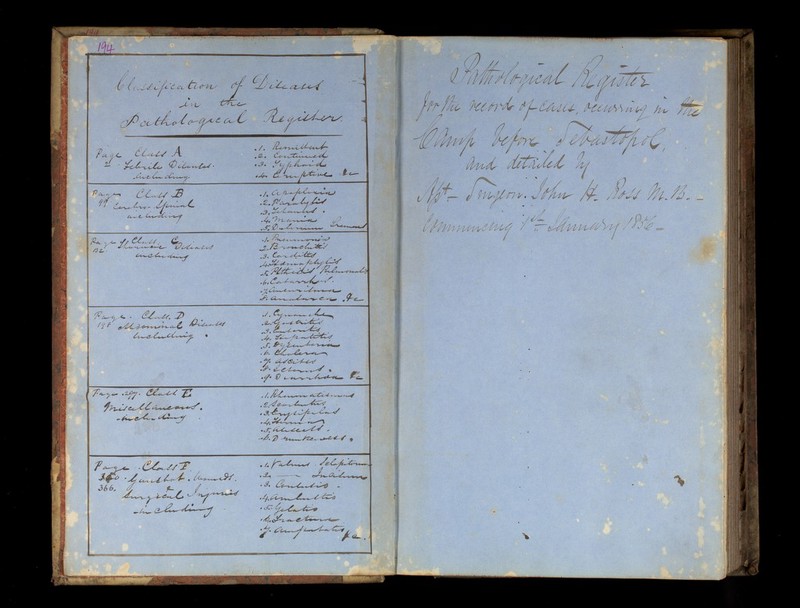 194
Classification of Diseases
in the
Pathological Register.
Page Class A
Febrile Diseases.
including
1. Remittent
2. Continued
3. Typhoid
4. Eruptive &c
Page Class B
Cerebro Spinal
including
1. Apoplexia
2. Paralysis
3. Tetanus.
4. Mania
5. Delirium Tremens
Page Class C
Thoracic Diseases
including
1. Pneumonia
2. Bronchitis
3. Carditis
5. Phthisis Pulmonalis
6. Catarrhus.
&c
Page. Class. D
Abdominal Diseases
including.
1. Cynanche
2. Gastritis
3. Enteritis
5. Dysenteria
6. Cholera
7. Ascites
8. Icterus.
9. Diarrhoea &c
Page 297. Class E
Miscellaneous.
including
1. Rheumatismus
2. Scorbutus
3. Erysipelas
4. Hernia
5. Abscess.
6. Drunkenness.
Page Class F
Gunshot Wounds.
366. &
Surgical Injuries
including
1. Vulnus Sclopitorum
2. Incisum
3. Contusio.
4. Ambustio
5. Gelatio
6. Fractura
&c.
Pathological Register
for the record of cases, occurring in the
Camp before Sebastopol,
and detailed by
Asst- Surgeon. John H. Ross M.B.-
Commencing 1st January 1856-